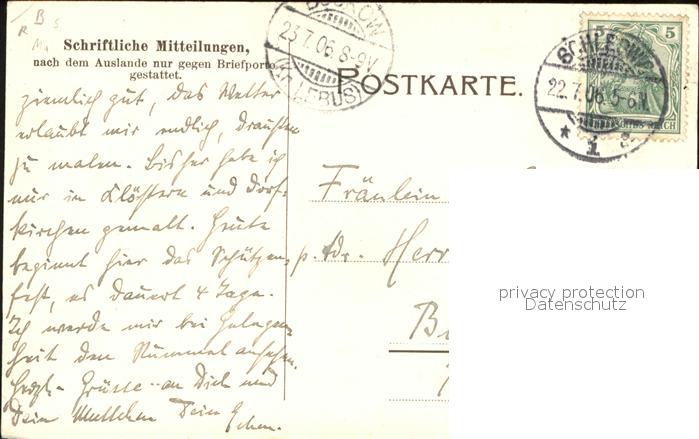 B
Schriftliche Mitteilungen,
nach dem Auslande nur gegen Briefporto
gestattet.
ziemlich gut, das Wetter
erlaubt mir endlich, draußen
zu malen. Bisher habe ich
nur in Klöstern und Dorf-
kirchen gemalt. Heute
beginnt hier das Schützen-
fest, es dauert 4 Tage.
Ich werde mir bei Gelegen-
heit den Rummel ansehen.
Herzl. Grüsse an Dich und
Dein Muttchen Dein
BUCKOW
23.7.06.8-9V
(Kr. LEBUS)
POSTKARTE.
SCHLESWIG
22.7.06.5-6N
* 1
5
5
Fräulein
p. Adr. Herr
privacy protection
Datenschutz